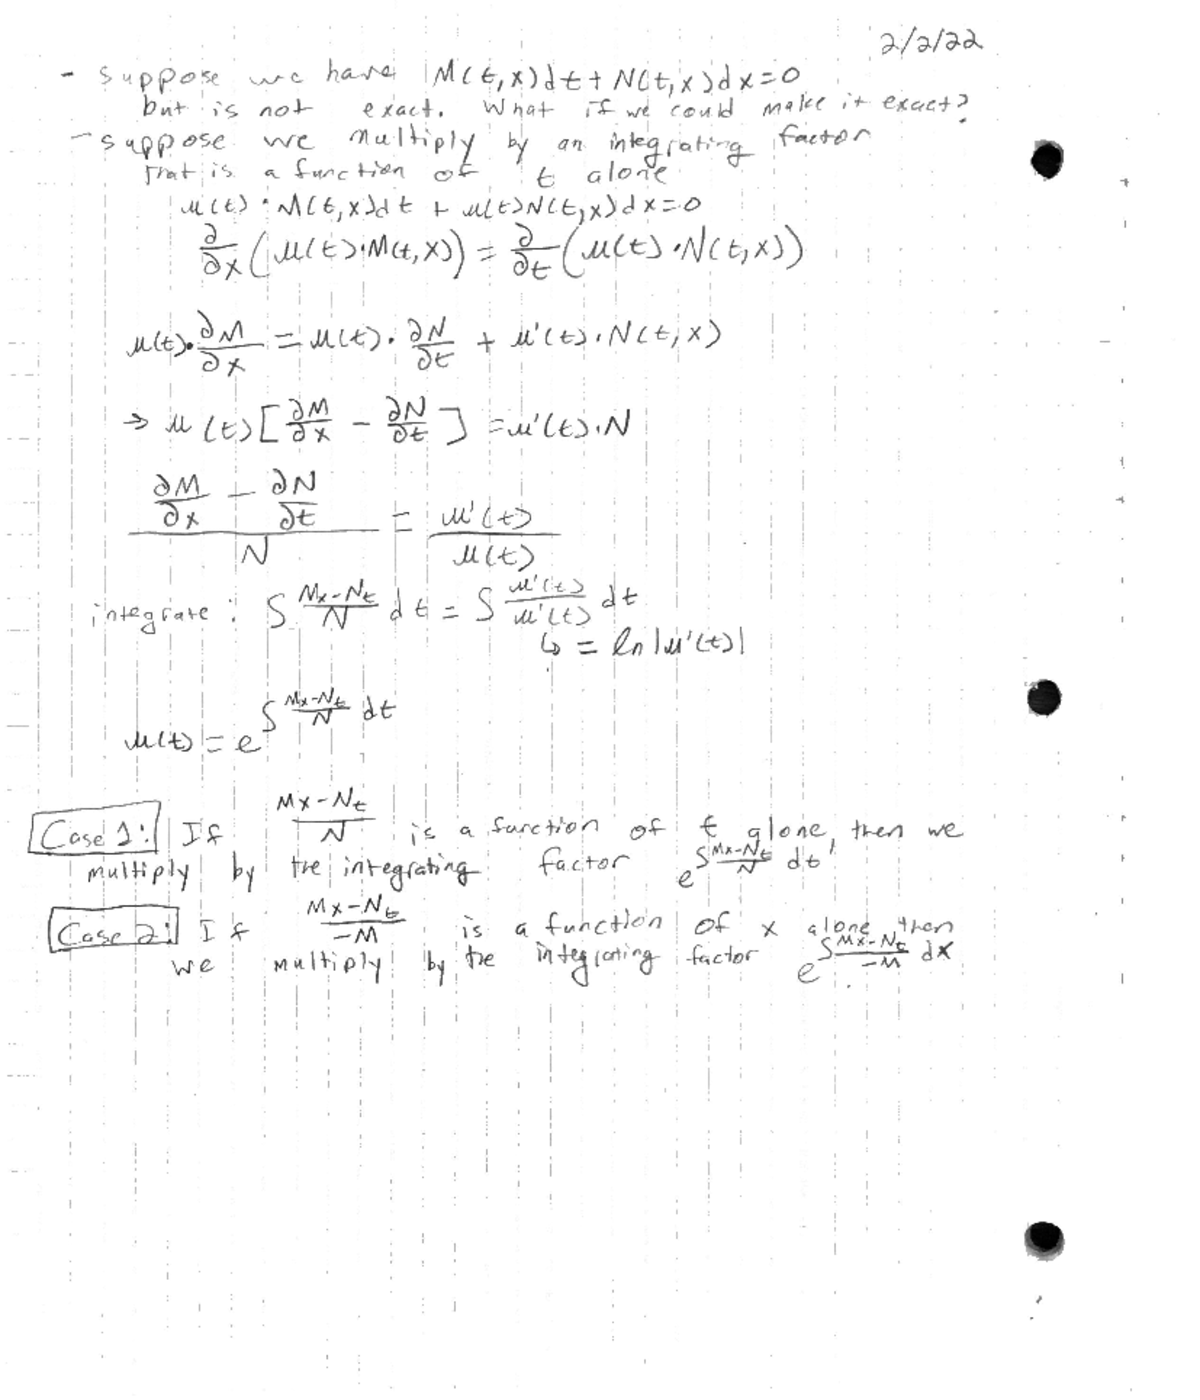 2/2/22
- suppose we have M(t,x)dt + N(t,x)dx=0
but is not exact. What if we could make it exact?
- suppose we multiply by an integrating factor
that is a function of t alone
μ(t)·M(t,x)dt + μ(t)N(t,x)dx=0
∂/∂x (μ(t)·M(t,x)) = ∂/∂t (μ(t)·N(t,x))
μ(t)·∂M/∂x = μ(t)·∂N/∂t + μ'(t)·N(t,x)
→ μ(t)[∂M/∂x - ∂N/∂t] = μ'(t)·N
(∂M/∂x - ∂N/∂t)/N = μ'(t)/μ(t)
integrate: ∫ (Mx-Nt)/N dt = ∫ μ'(t)/μ'(t) dt
↳ = ln|μ'(t)|
μ(t) = e^(∫ (Mx-Nt)/N dt)
Case 1: If (Mx-Nt)/N is a function of t alone, then we
multiply by the integrating factor e^(∫ (Mx-Nt)/N dt)
Case 2: If (Mx-Nt)/-M is a function of x alone, then
we multiply by the integrating factor e^(∫ (Mx-Nt)/-M dx)